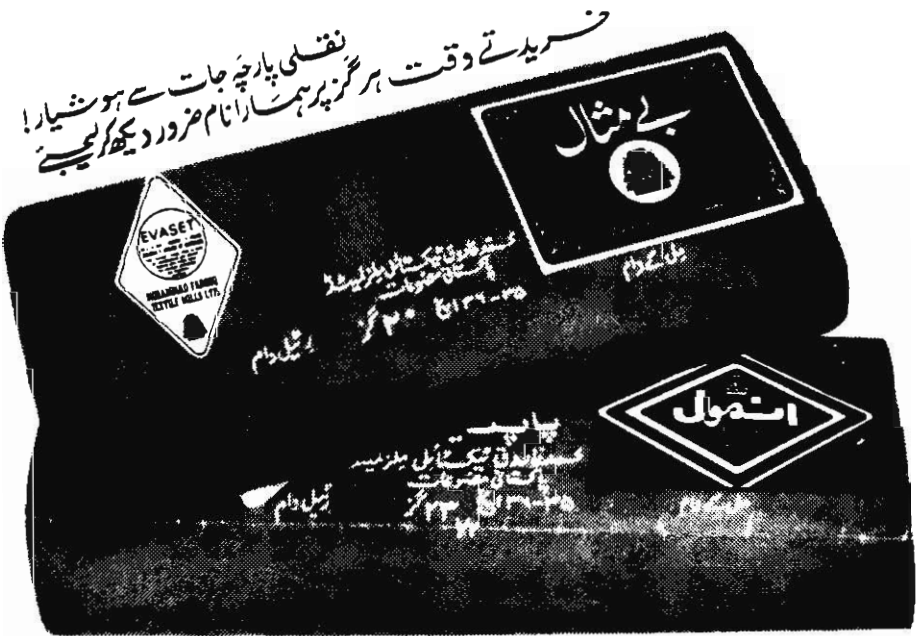 نقلی پارچہ جات سے ہوشیار!
خریدتے وقت ہر گز پر ہمارا نام ضرور دیکھ کر لیجئے
بے مثال
EVASET
MUHAMMAD FAROOQ
TEXTILE MILLS LTD.
محمد فاروق ٹیکسٹائل ملز لمیٹڈ
پاکستانی مصنوعات
۳۵-۳۶ انچ ۲۰ گز
ریٹیل دام
مل کے دام
انمول
پاپلین
محمد فاروق ٹیکسٹائل ملز لمیٹڈ
پاکستانی مصنوعات
۳۵-۳۶ انچ ۲۳ گز
ریٹیل دام
مل کے دام